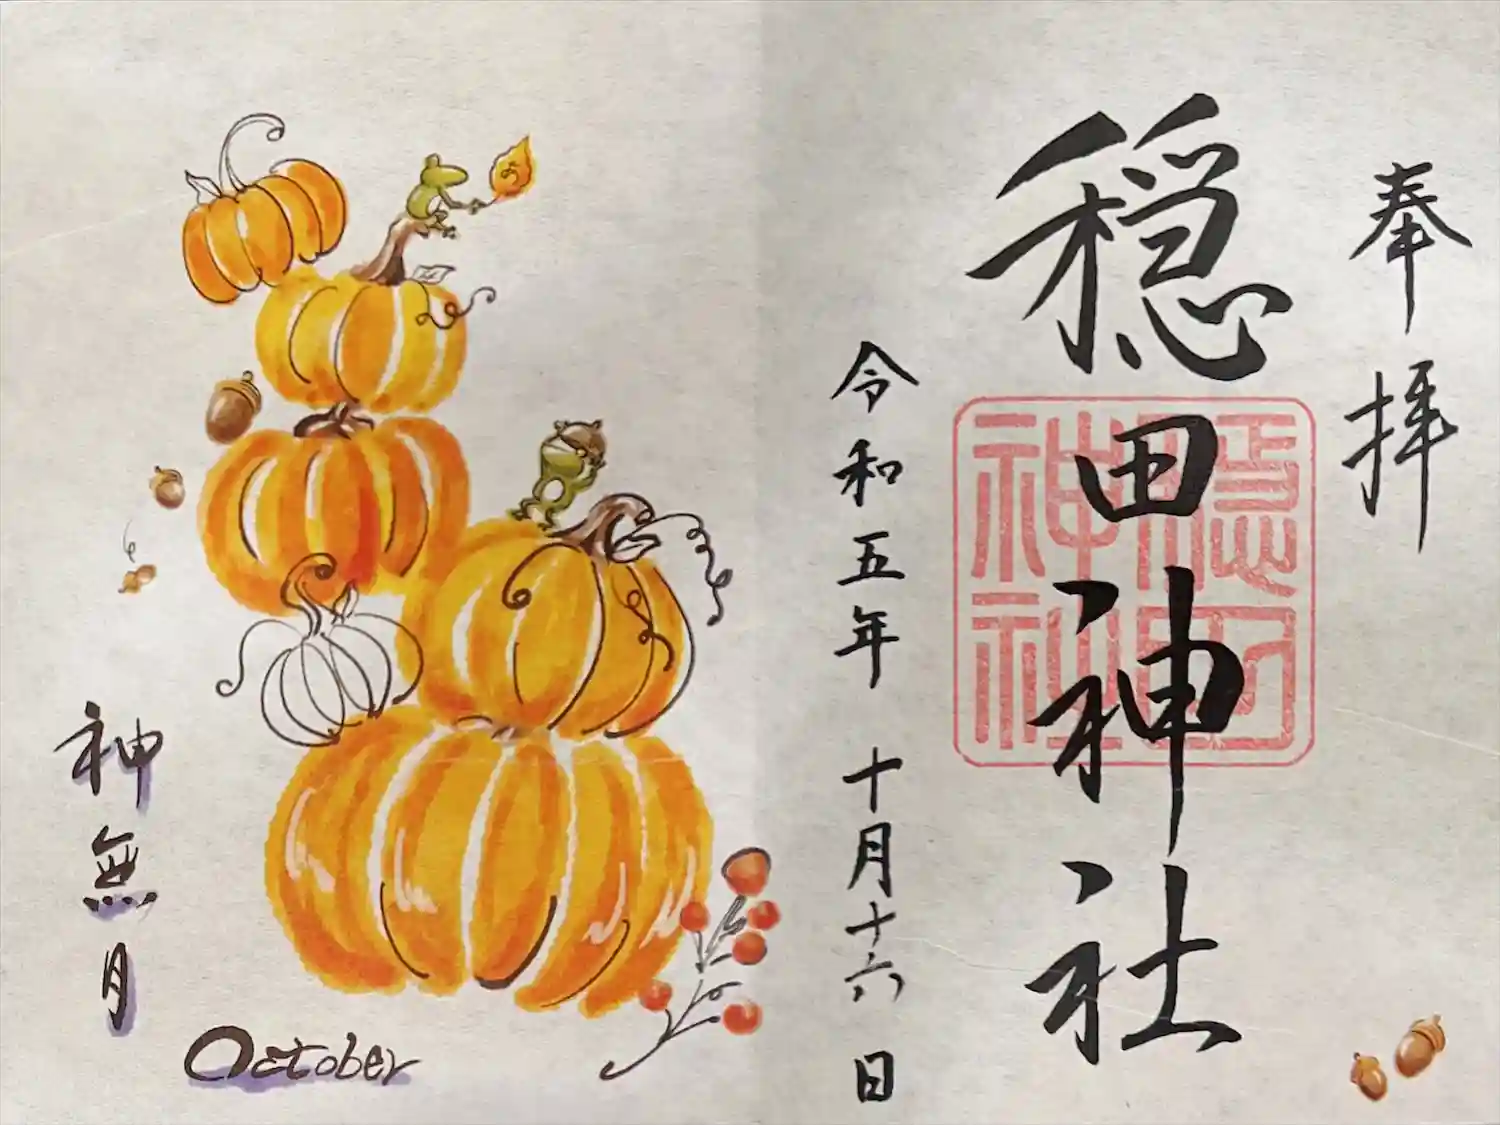 奉拝
穏田神社
穏田神社
令和五年 十月十六日
神無月
October